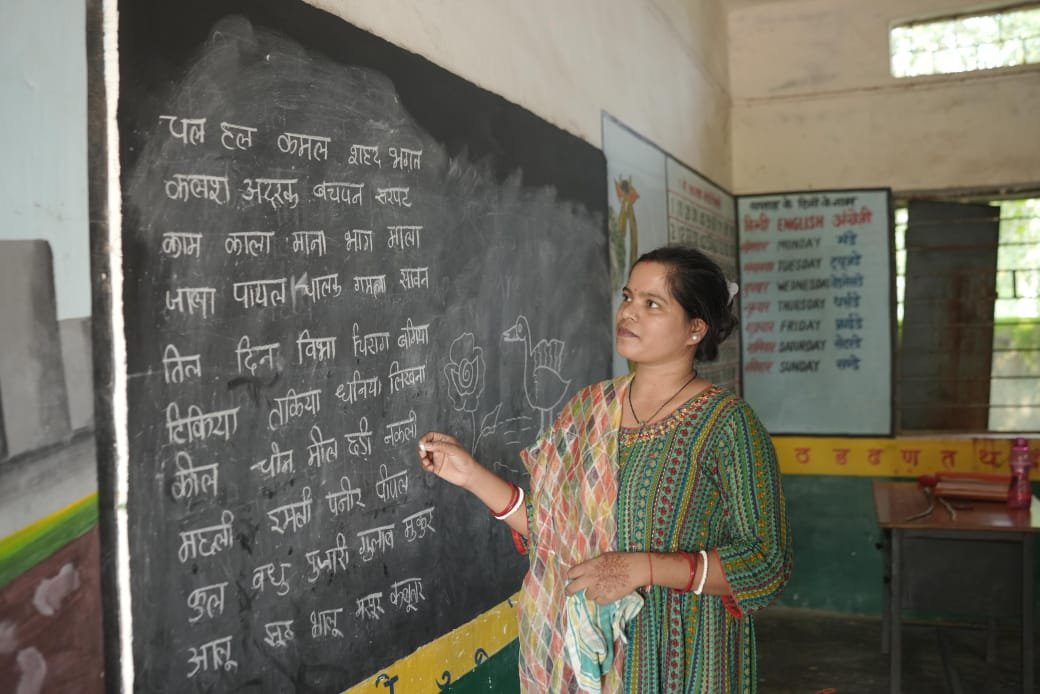 पल हल कमल शहद भगत
कलश अदरक बचपन सरपट
काम काला माना भाग माला
जाला पायल पालक गमला सावन
तिल दिन विभा चिराग बगिया
टिकिया तकिया धनिया लिखना
कील चीन मील दही नकली
मछली इमली पनीर पीपल
कुल वधु पुजारी गुलाब मुकुर
आलू झूठ भालू मसूर कबूतर
सप्ताह के दिनों के नाम
हिन्दी ENGLISH अंग्रेजी
सोमवार MONDAY मंडे
मंगलवार TUESDAY ट्यूजडे
बुधवार WEDNESDAY
गुरुवार THURSDAY थर्सडे
शुक्रवार FRIDAY फ्राईडे
शनिवार SATURDAY सैटरडे
रविवार SUNDAY सन्डे
ठ ड ढ ण त थ